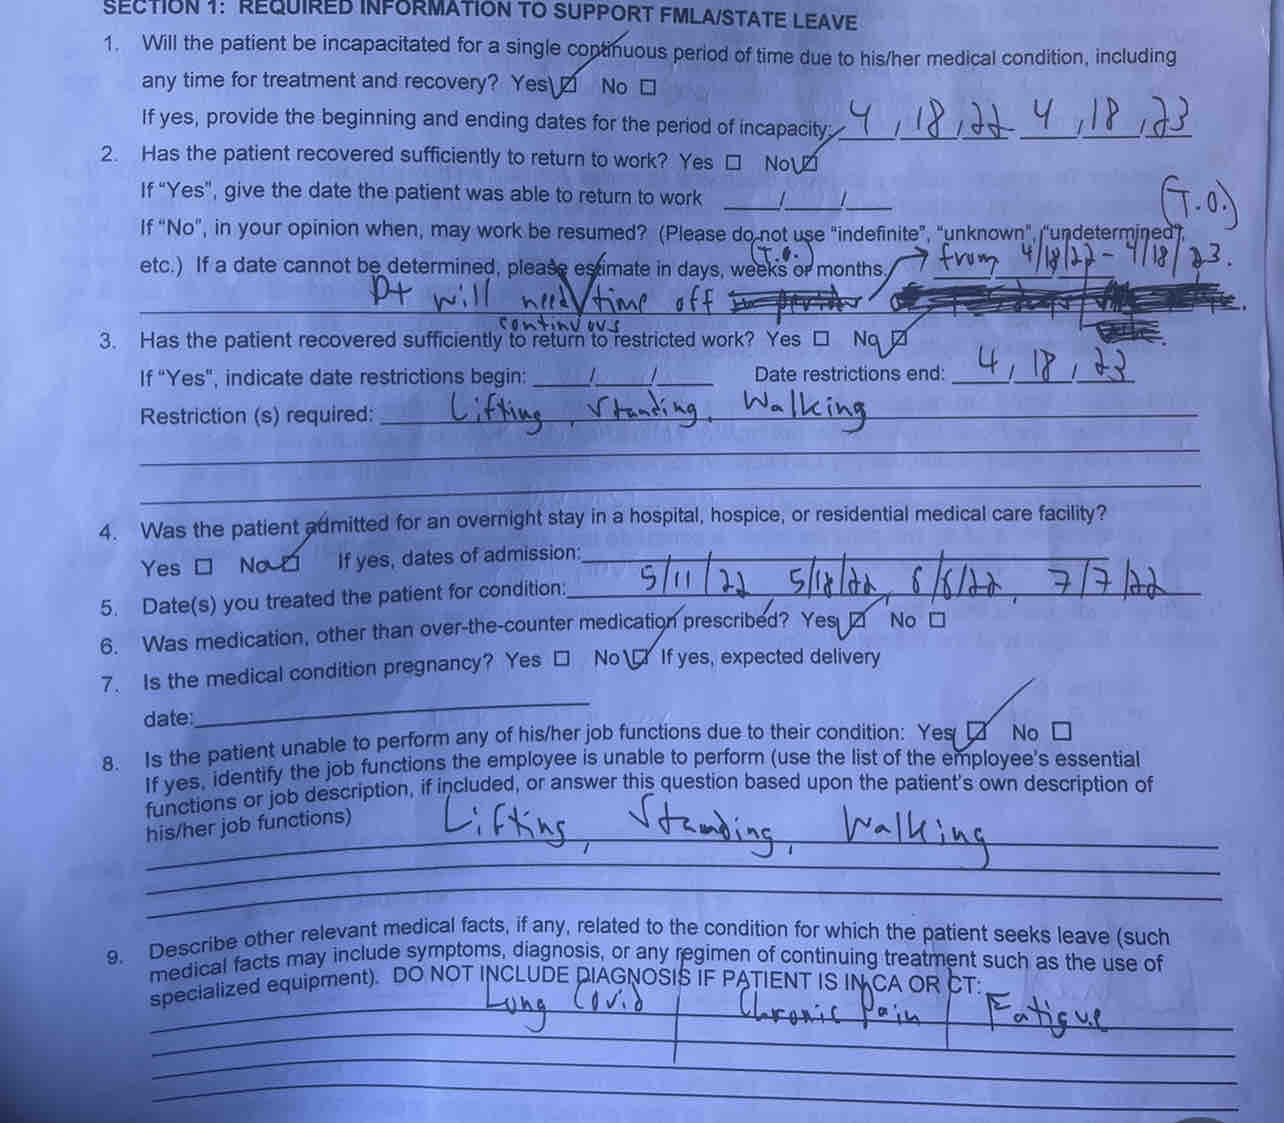 SECTION 1: REQUIRED INFORMATION TO SUPPORT FMLA/STATE LEAVE
1. Will the patient be incapacitated for a single continuous period of time due to his/her medical condition, including
any time for treatment and recovery? Yes ☑ No ☐
If yes, provide the beginning and ending dates for the period of incapacity: 4, 18, 22 4, 18, 23
2. Has the patient recovered sufficiently to return to work? Yes ☐ No ☑
If "Yes", give the date the patient was able to return to work ____/____/____
(T.O.)
If "No", in your opinion when, may work be resumed? (Please do not use "indefinite", "unknown", "undetermined",
(T.O.)
etc.) If a date cannot be determined, please estimate in days, weeks or months. → from 4/18/22 - 4/18/23.
Pt will need time off
continuous
3. Has the patient recovered sufficiently to return to restricted work? Yes ☐ No ☑
If "Yes", indicate date restrictions begin: ____/____/____ Date restrictions end: 4, 18, 23
Restriction (s) required: Lifting, Standing, Walking
4. Was the patient admitted for an overnight stay in a hospital, hospice, or residential medical care facility?
Yes ☐ No ☑ If yes, dates of admission:
5. Date(s) you treated the patient for condition: 5/11/22 5/18/22, 6/6/22, 7/7/22
6. Was medication, other than over-the-counter medication prescribed? Yes ☑ No ☐
7. Is the medical condition pregnancy? Yes ☐ No ☑ If yes, expected delivery
date:
8. Is the patient unable to perform any of his/her job functions due to their condition: Yes ☑ No ☐
If yes, identify the job functions the employee is unable to perform (use the list of the employee's essential
functions or job description, if included, or answer this question based upon the patient's own description of
his/her job functions)
Lifting, Standing, Walking
9. Describe other relevant medical facts, if any, related to the condition for which the patient seeks leave (such
medical facts may include symptoms, diagnosis, or any regimen of continuing treatment such as the use of
specialized equipment). DO NOT INCLUDE DIAGNOSIS IF PATIENT IS IN CA OR CT:
Long Covid / Chronic Pain / Fatigue